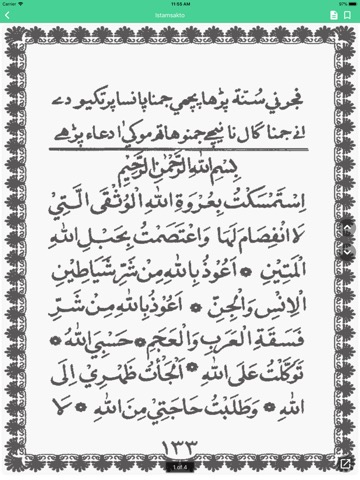 Carrier
11:55 AM
97%
Istamsakto
فجرني سُنّة پڑهاپچهي جمنا پانساپر تکيو دے
انے جمنا گال نا نيچے جمنو هاتهـ موکي ا دعاء پڑهے
بِسْمِ اللهِ الرَّحْمٰنِ الرَّحِيْمِ
اِسْتَمْسَكْتُ بِعُرْوَةِ اللهِ الْوُثْقَى الَّتِيْ
لَا انْفِصَامَ لَهَا وَاعْتَصَمْتُ بِحَبْلِ اللهِ
الْمَتِيْنِ * اَعُوْذُ بِاللهِ مِنْ شَرِّ شَيَاطِيْنِ
الْاِنْسِ وَالْجِنِّ * اَعُوْذُ بِاللهِ مِنْ شَرِّ
فَسَقَةِ الْعَرَبِ وَالْعَجَمِ * حَسْبِيَ اللهُ *
تَوَكَّلْتُ عَلَى اللهِ * اَلْجَأْتُ ظَهْرِيْ اِلَى
اللهِ * وَطَلَبْتُ حَاجَتِيْ مِنَ اللهِ * لَا
١٣٣
1 of 4